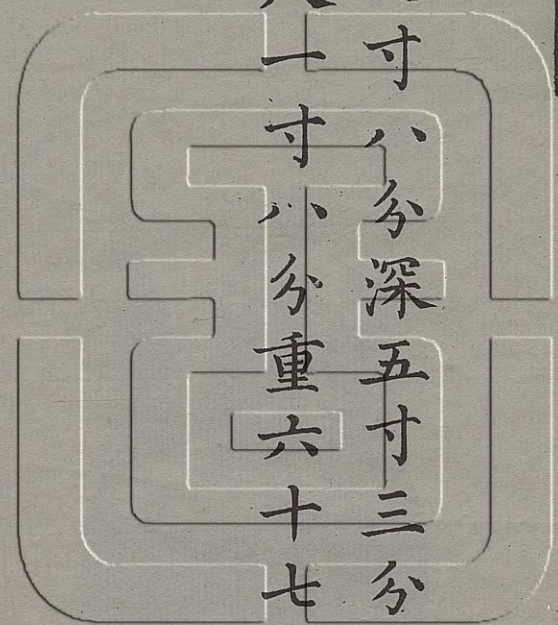 寸八分深五寸三分
一寸八分重六十七